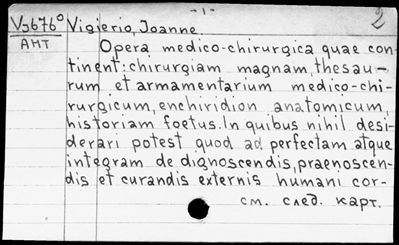 -1-
2
V3676° Vigierio, Joanne
АНТ
Opera medico-chirurgica quae con-
tinent: chirurgiam magnam, thesau-
rum et armamentarium medico-chi-
rurgicum, enchiridion anatomicum,
historiam foetus. In quibus nihil desi-
derari potest quod ad perfectam atque
integram de dignoscendis, praenoscen-
dis et curandis externis humani cor-
см. след. карт.